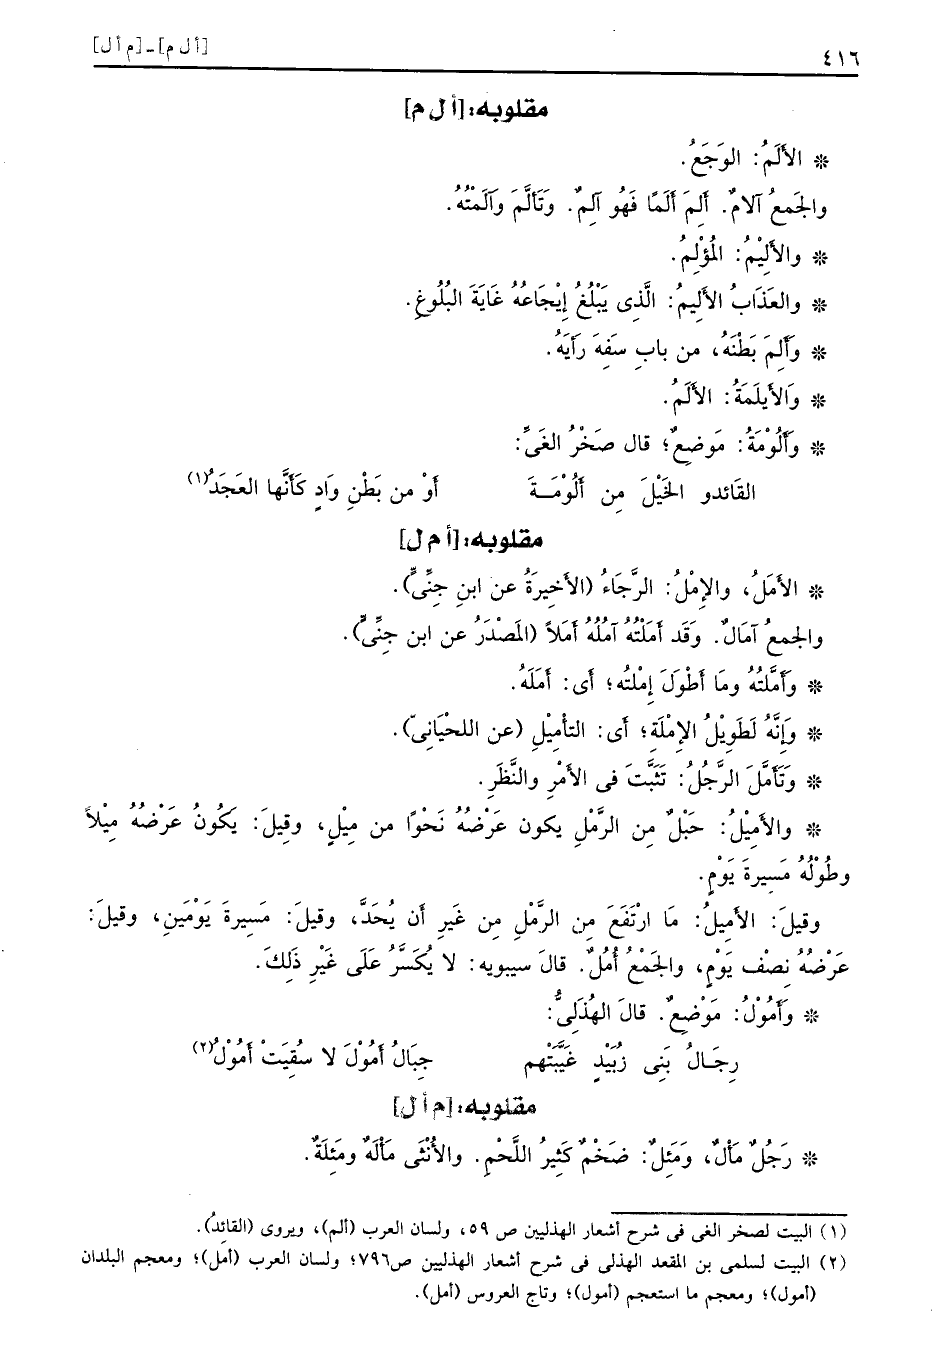 ٤١٦ [أ ل م] ـ [م أ ل]
مقلوبه: [أ ل م]
* الأَلَمُ: الوَجَعُ.
والجَمعُ آلامٌ. أَلِمَ أَلَمًا فَهُو آلِمٌ. وَتَأَلَّمَ وَآلَمْتُهُ.
* والأَلِيْمُ: المُؤْلِمُ.
* والعَذَابُ الأَلِيمُ: الَّذِى يَبْلُغُ إِيْجَاعُهُ غَايَةَ البُلُوغِ.
* وَأَلِمَ بَطْنَهُ، من بابِ سَفِهَ رَأيَهُ.
* وَالأَيلَمَةُ: الأَلَمُ.
* وَأَلُوْمَةُ: مَوضِعٌ؛ قال صَخْرُ الغَىِّ:
القَائدو الخَيْلَ مِن أَلُوْمَـةَ أَوْ من بَطْنِ وَادٍ كَأَنَّها العَجَدُ(١)
مقلوبه: [أ م ل]
* الأَمَلُ، والإِمْلُ: الرَّجَاءُ (الأَخِيرَةُ عن ابنِ جِنِّىٍّ).
والجمعُ آمَالٌ. وَقَد أَمَلْتُهُ آمُلُهُ أَمَلاً (المَصْدَرُ عن ابن جنِّىٍّ).
* وَأَمَّلتُهُ ومَا أَطْوَلَ إِمْلتُه؛ أى: أَمَلَهُ.
* وَإِنَّهُ لَطَوِيْلُ الإِمْلَةِ؛ أى: التأمِيْلِ (عن اللحْيَانِىّ).
* وَتَأَمَّلَ الرَّجُلُ: تَثَبَّتَ فى الأَمْرِ والنَّظَرِ.
* والأَمِيْلُ: حَبْلٌ مِن الرَّمْلِ يكون عَرْضُهُ نَحْوًا من مِيْلٍ، وقيلَ: يكُونُ عَرْضهُ مِيْلاً
وطُوْلُهُ مَسِيرةَ يَوْمٍ.
وقيلَ: الأَمِيلُ: مَا ارْتَفَعَ مِن الرَّمْلِ مِن غَيرِ أن يُحَدَّ، وقيلَ: مَسِيرةَ يَوْمَينِ، وقيلَ:
عَرْضُهُ نِصْف يَوْمٍ، والجَمْعُ أُمُلٌ. قالَ سيبويه: لا يُكَسَّرُ عَلَى غَيْرِ ذَلِكَ.
* وَأَمُوْلُ: مَوْضِعٌ. قالَ الهُذَلِىُّ:
رِجَـالُ بَنِى زُبَيْدٍ غَيَّبَتْهم جِبَالُ أَمُوْلَ لا سُقِيَتْ أَمُوْلُ(٢)
مقلوبه: [م أ ل]
* رَجُلٌ مَأْلٌ، وَمَئِلٌ: ضَخْمٌ كَثِيرُ اللَّحْمِ. والأُنْثَى مَأْلَةٌ ومَئِلَةٌ.
(١) البيت لصخر الغى فى شرح أشعار الهذليين ص ٥٩، ولسان العرب (ألم)، ويروى (القائدُ).
(٢) البيت لسلمى بن المقعد الهذلى فى شرح أشعار الهذليين ص٧٩٦؛ ولسان العرب (أمل)؛ ومعجم البلدان
(أمول)؛ ومعجم ما استعجم (أمول)؛ وتاج العروس (أمل).